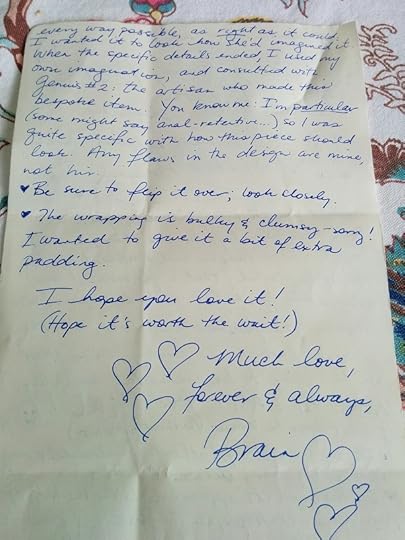 every way possible, as right as it could.
I wanted it to look how she'd imagined it.
When the specific details ended, I used my
own imagination, and consulted with
Genius #2: the artisan who made this
bespoke item. You know me: I'm particular
(some might say anal-retentive...) so I was
quite specific with how this piece should
look. Any flaws in the design are mine,
not his.
♥ Be sure to flip it over; look closely.
♥ The wrapping is bulky & clumsy - sorry!
I wanted to give it a bit of extra
padding.
I hope you love it!
(Hope it's worth the wait!)
Much love,
forever & always,
Brain